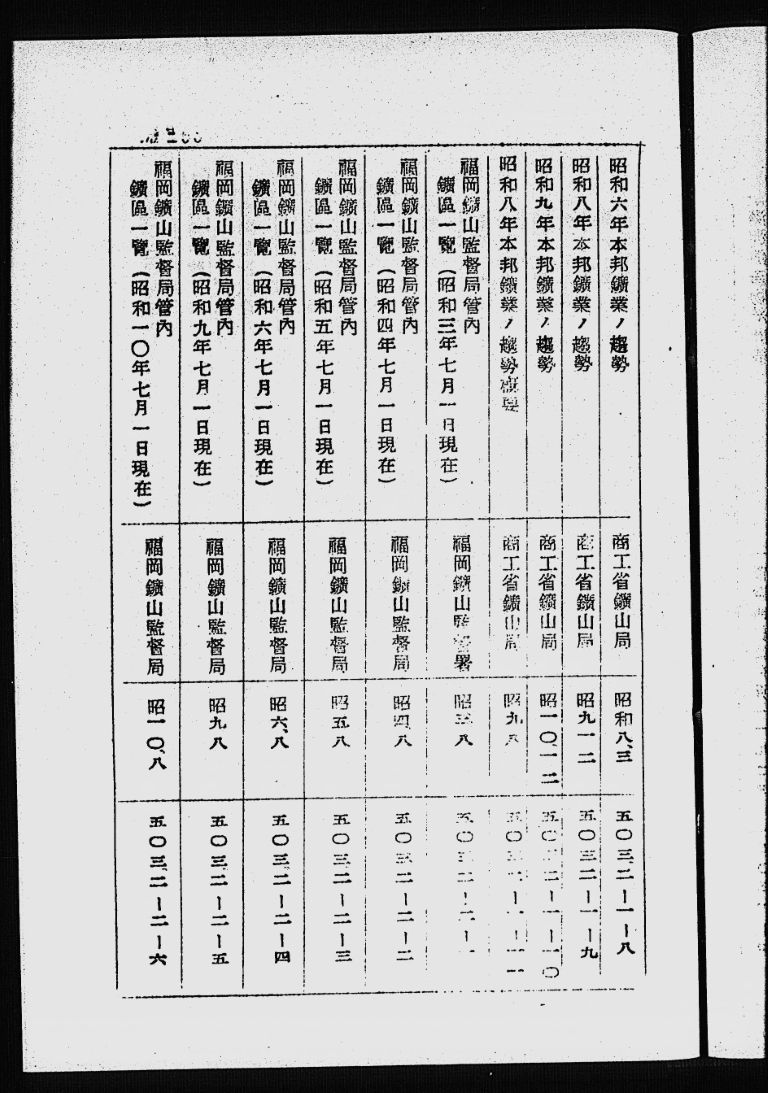 昭和六年本邦鑛業ノ趨勢
商工省鑛山局
昭和八、三
五〇三、二ー一ー八
昭和八年本邦鑛業ノ趨勢
商工省鑛山局
昭九一二
五〇三二ー一ー九
昭和九年本邦鑛業ノ趨勢
商工省鑛山局
昭一〇、一二
五〇三、二ー一ー一〇
昭和八年本邦鑛業ノ趨勢概要
商工省鑛山局
昭九、八
五〇三、二ー一ー一一
福岡鑛山監督局管內
鑛區一覽(昭和三年七月一日現在)
福岡鑛山監督署
昭三、八
五〇三、二ー二ー一
福岡鑛山監督局管內
鑛區一覽(昭和四年七月一日現在)
福岡鑛山監督局
昭四、八
五〇三、二ー二ー二
福岡鑛山監督局管內
鑛區一覽(昭和五年七月一日現在)
福岡鑛山監督局
昭五八
五〇三、二ー二ー三
福岡鑛山監督局管內
鑛區一覽(昭和六年七月一日現在)
福岡鑛山監督局
昭六、八
五〇三、二ー二ー四
福岡鑛山監督局管內
鑛區一覽(昭和九年七月一日現在)
福岡鑛山監督局
昭九八
五〇三、二ー二ー五
福岡鑛山監督局管內
鑛區一覽(昭和一〇年七月一日現在)
福岡鑛山監督局
昭一〇、八
五〇三、二ー二ー六